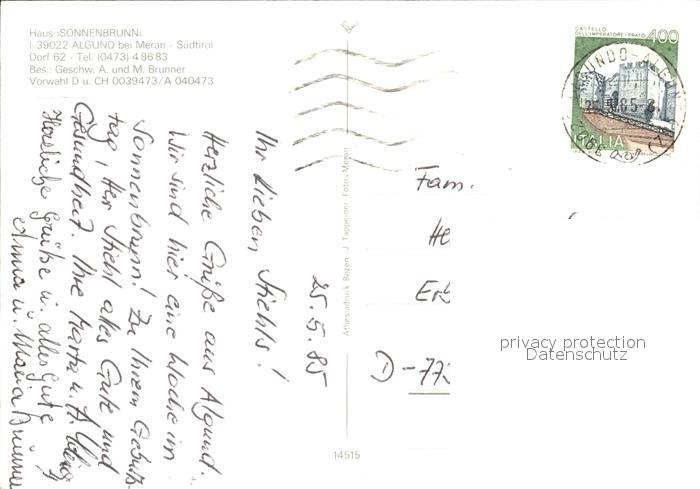 Haus ›SONNENBRUNN‹
I-39022 ALGUND bei Meran - Südtirol
Dorf 62 - Tel. (0473) 4 86 83
Bes.: Geschw. A. und M. Brunner
Vorwahl D u. CH 0039473/A 040473
25.5.85
Ihr lieben Stiehls!
Herzliche Grüße aus Algund.
Wir sind hier eine Woche im
Sonnenbrunn! Zu Ihrem Geburts-
tag, Herr Stiehl alles Gute und
Gesundheit. Ihre Marta u. A.
Herzliche Grüße u. alles Gute
Anna u. Maria Brunner
Athesiadruck Bozen - J. Tappeiner Foto - Meran
14515
CASTELLO
DELL'IMPERATORE - PRATO 400
ITALIA
Fam.
D-773
privacy protection
Datenschutz